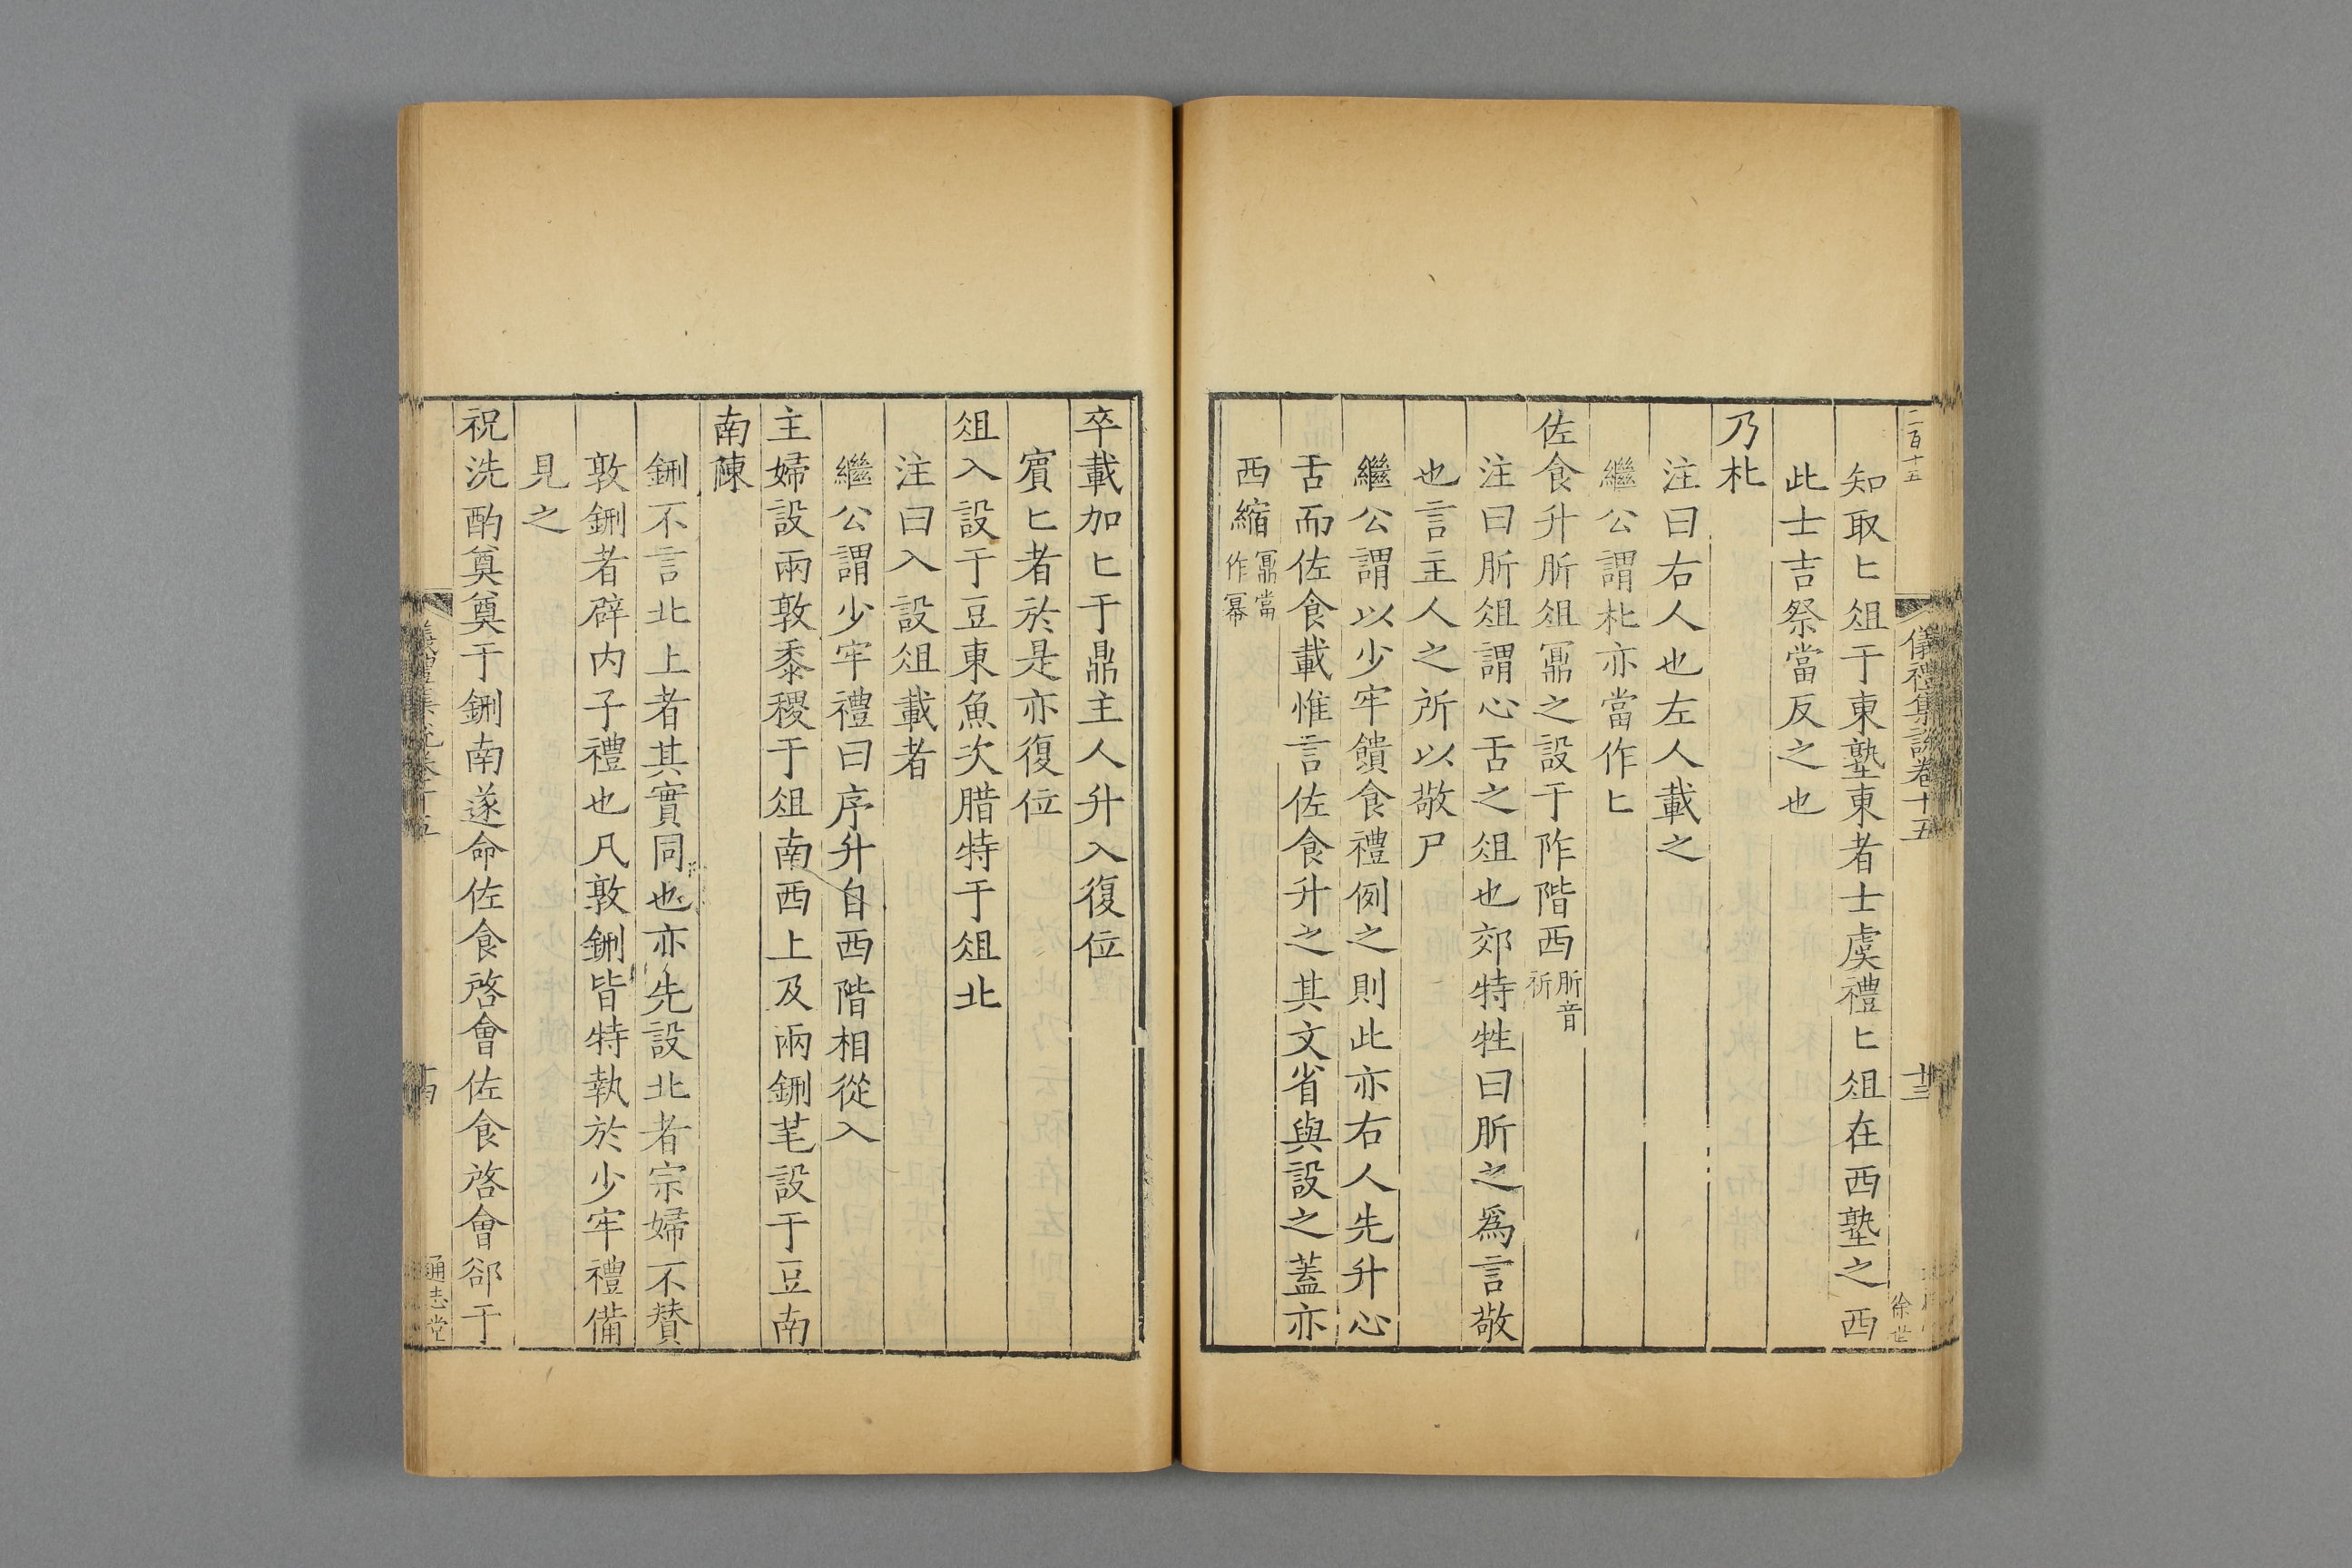 二百十五
儀禮集說卷十五
十三
徐世
知取匕俎于東塾東者士虞禮匕俎在西塾之西
此士吉祭當反之也
乃朼
注曰右人也左人載之
繼公謂朼亦當作匕
佐食升肵俎鼏之設于阼階西肵音祈
注曰肵俎謂心舌之俎也郊特牲曰肵之爲言敬
也言主人之所以敬尸
繼公謂以少牢饋食禮例之則此亦右人先升心
舌而佐食載惟言佐食升之其文省與設之蓋亦
西縮鼏當作冪
卒載加匕于鼎主人升入復位
賓匕者於是亦復位
俎入設于豆東魚次腊特于俎北
注曰入設俎載者
繼公謂少牢禮曰序升自西階相從入
主婦設兩敦黍稷于俎南西上及兩鉶芼設于豆南
南陳
鉶不言北上者其實同也亦先設北者宗婦不贊
敦鉶者辟内子禮也凡敦鉶皆特執於少牢禮備
見之
祝洗酌奠奠于鉶南遂命佐食啓會佐食啓會郤于
儀禮集說卷十五
十四
通志堂